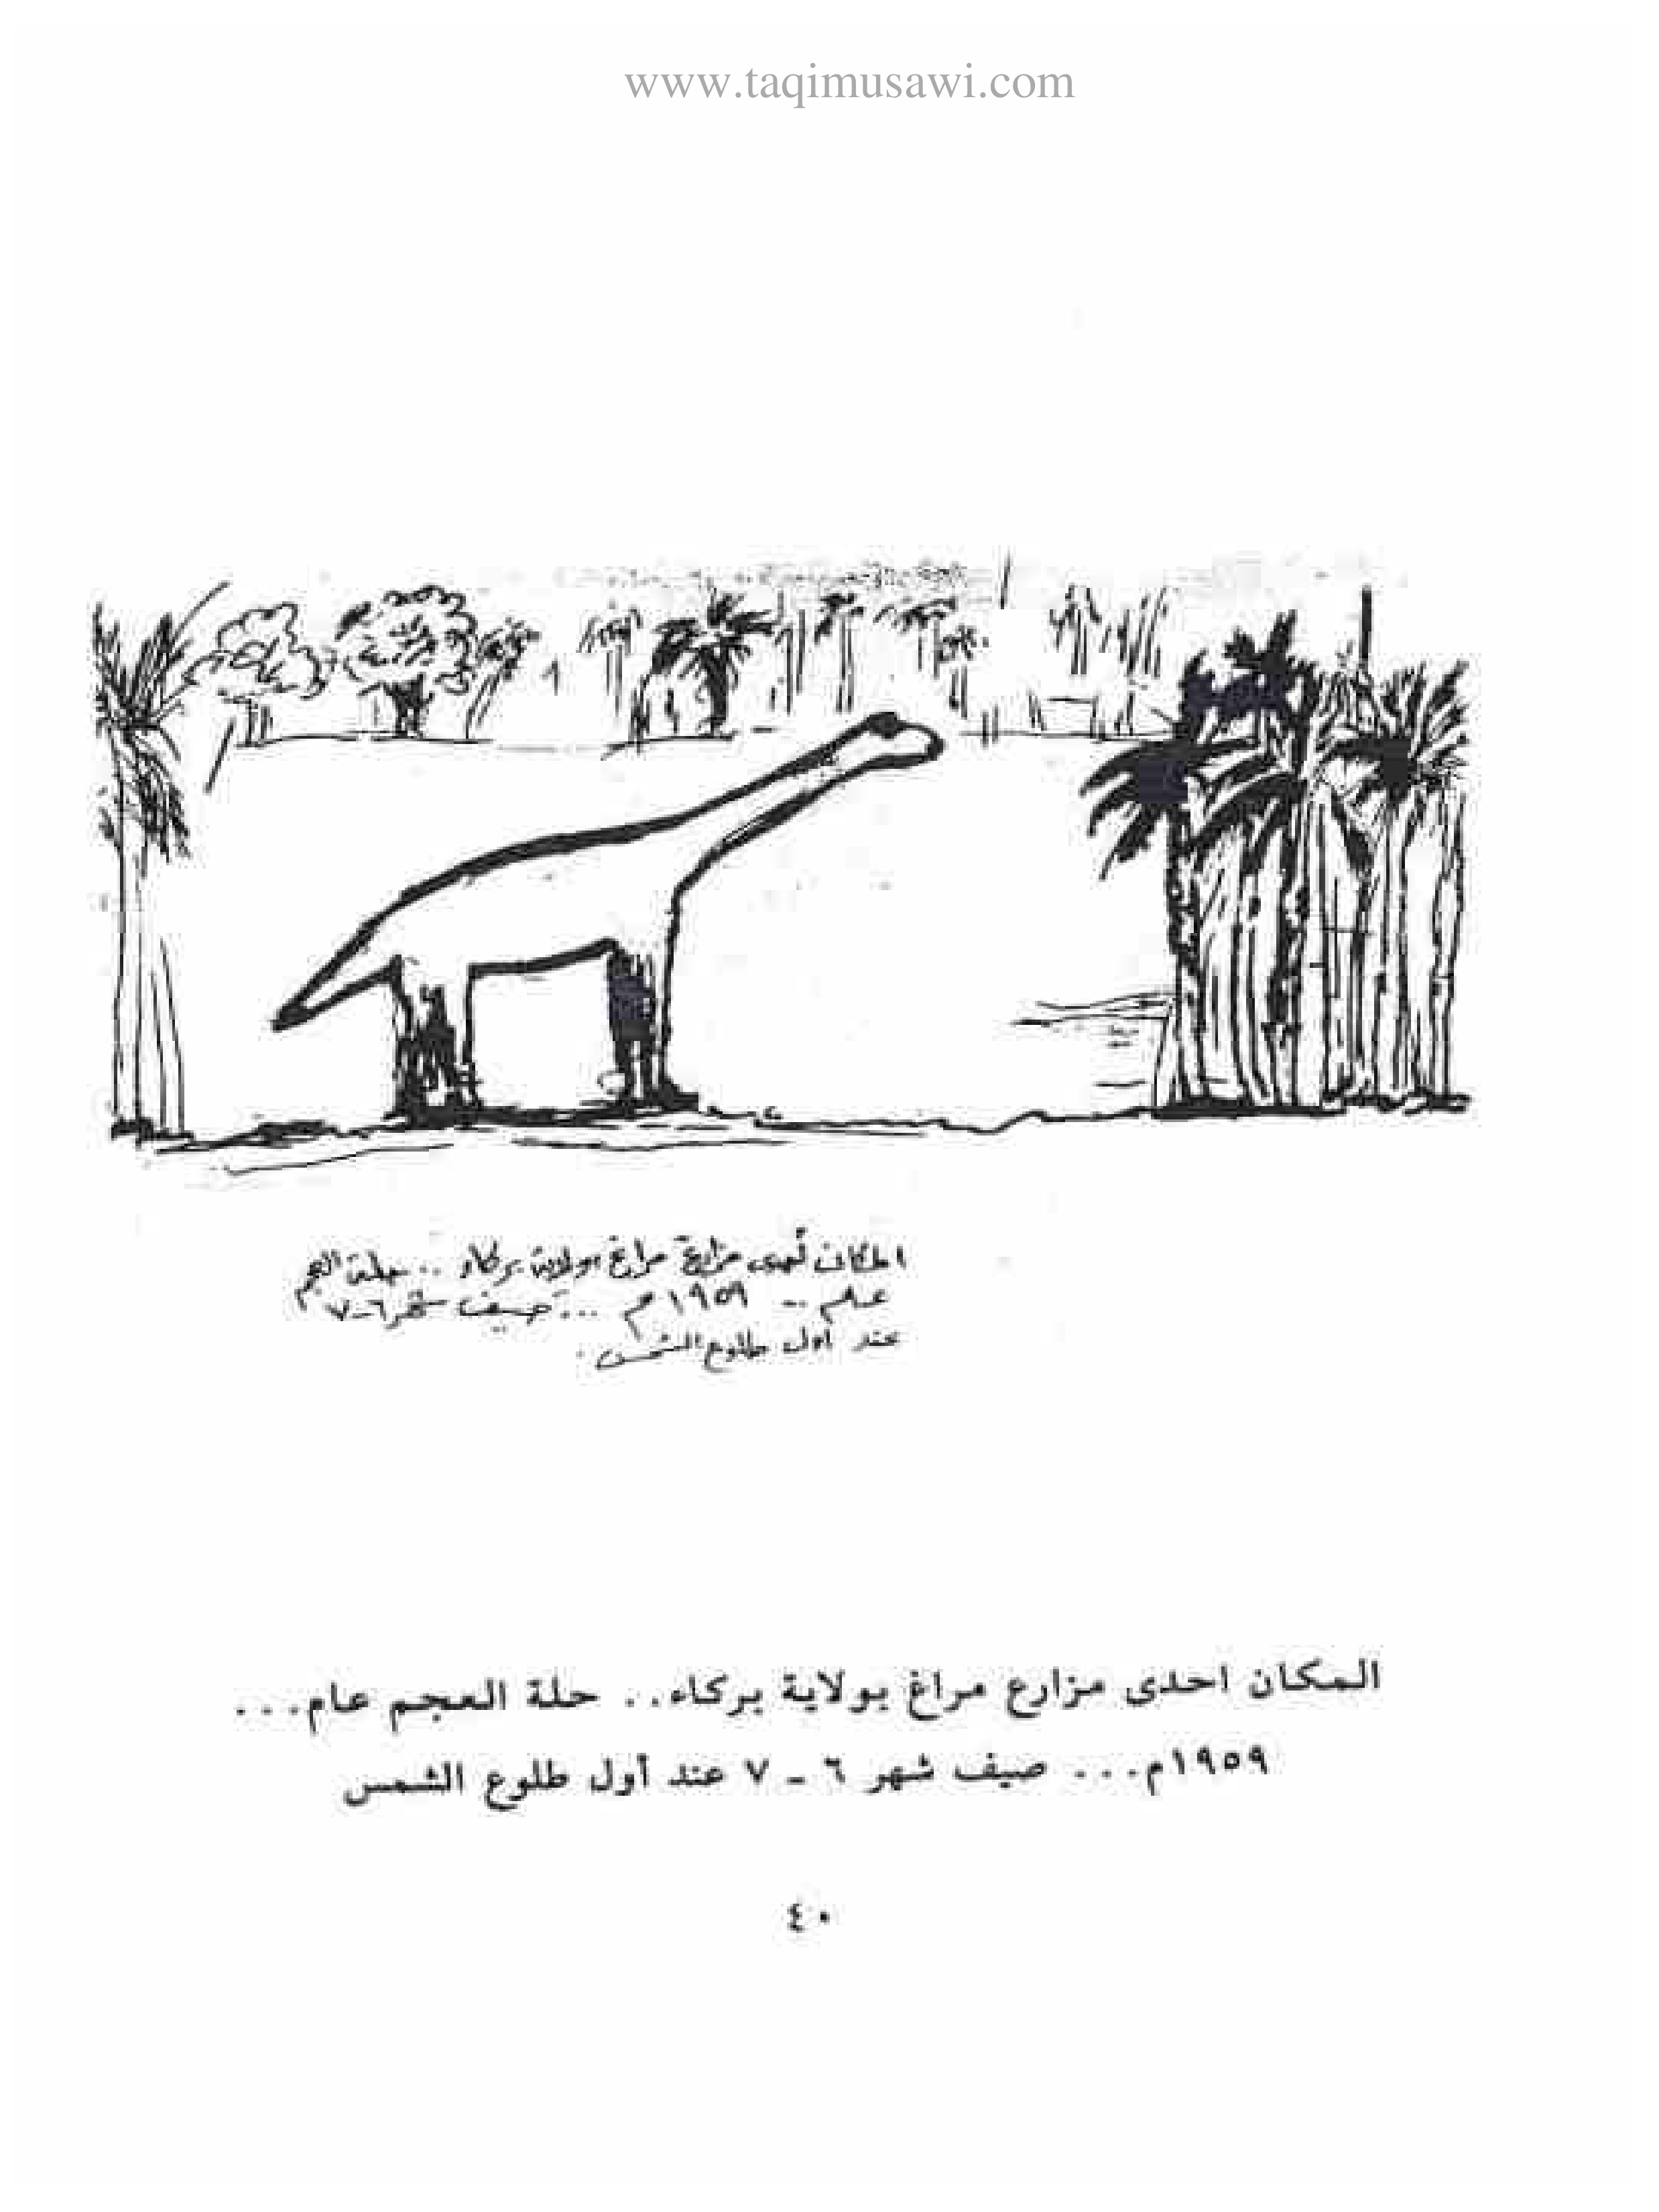 www.taqimusawi.com
المكان أحدى مزارع مراغ بولاية بركاء .. حلة العجم
عام .. ١٩٥٩م ... صيف شهر ٦-٧
عند أول طلوع الشمس .
المكان احدى مزارع مراغ بولاية بركاء.. حلة العجم عام...
١٩٥٩م... صيف شهر ٦ - ٧ عند أول طلوع الشمس
٤٠